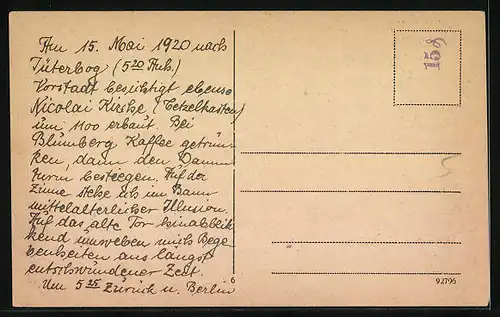 Am 15. Mai 1920 nach
Jüterbog (5²⁰ Anh.)
Vorstadt besichtigt ebenso
Nicolai Kirche (Tetzelkasten)
um 1100 erbaut. Bei
Blumberg Kaffee getrun-
ken, dann den Damm
turm bestiegen. Auf der
Zinne stehe ich im Bann
mittelalterlicher Illusion.
Auf das alte Tor hinabblik-
kend umweben mich Bege
benheiten aus längst
entschwundener Zeit.
Um 5²⁵ zurück n. Berlin
15
5
6
92796